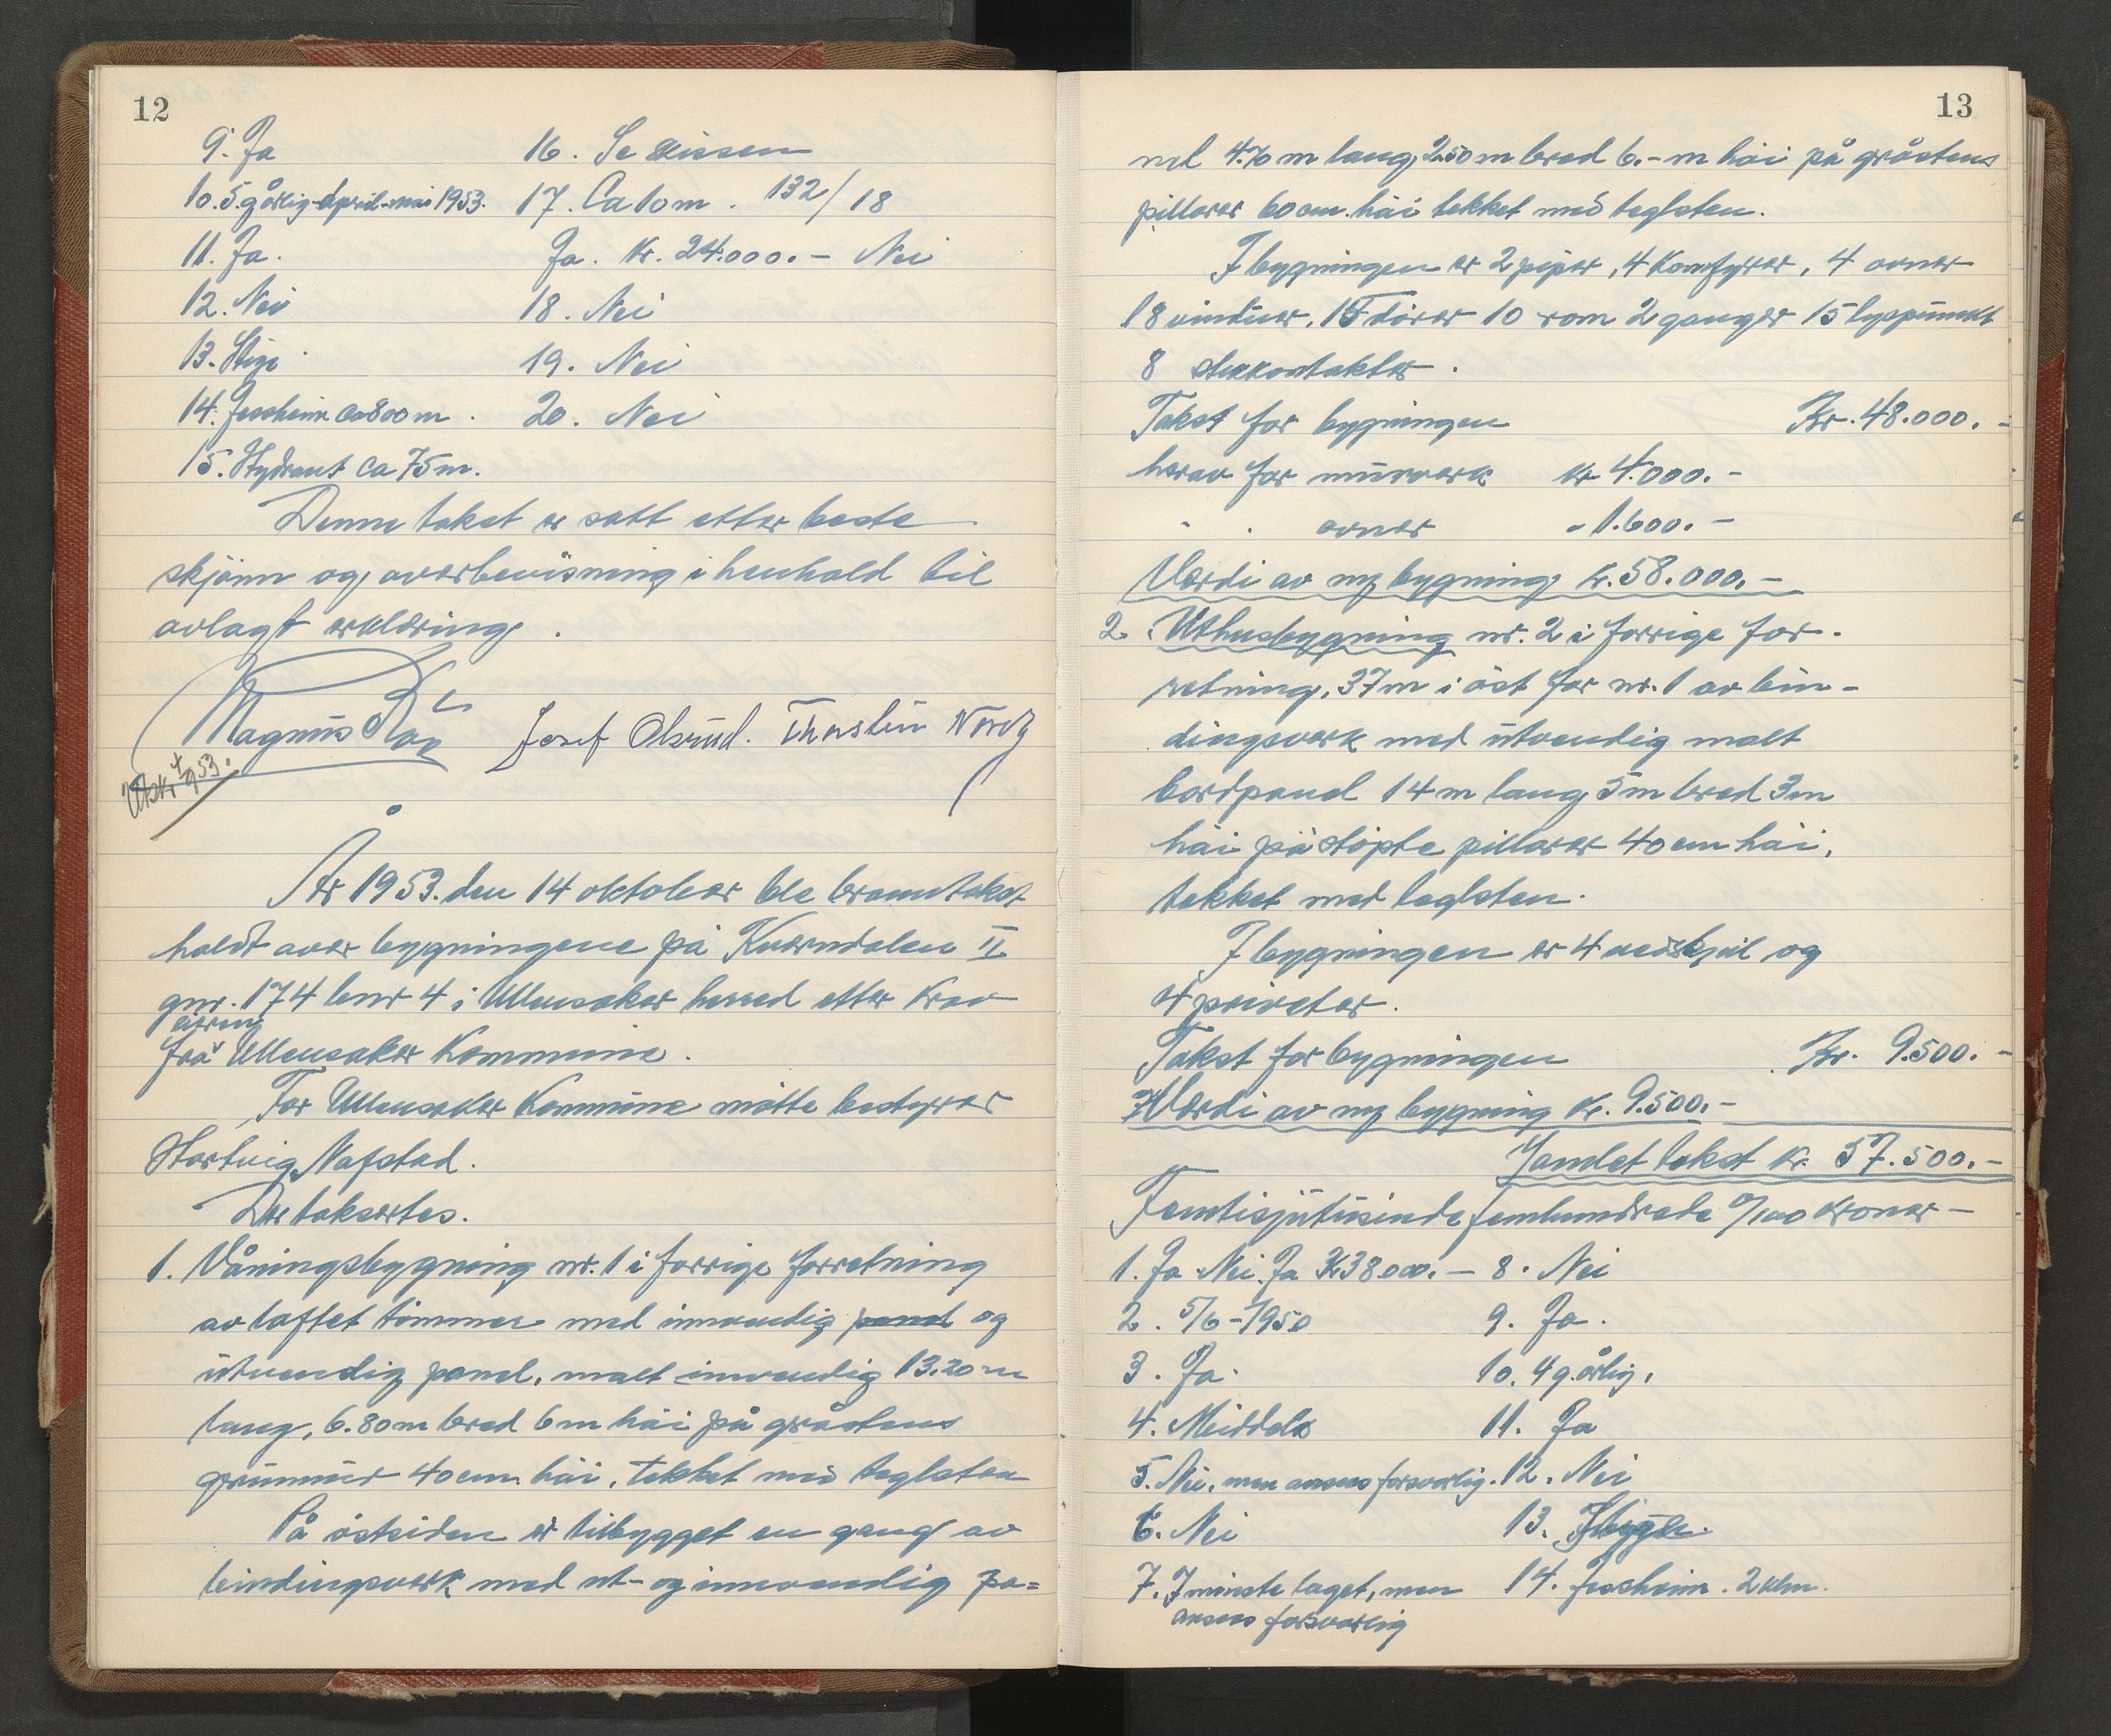 12
9. Ja
10. 5.g årlig-april-mai 1953.
11. Ja.
12. Nei
13. Stige
14. Jessheim ca 800 m.
15. Hydrant ca 75 m.
16. Se skissen
17. Ca 10 m. 132/18
Ja. Kr. 24.000.- Nei
18. Nei
19. Nei
20. Nei
Denne takst er satt etter beste
skjönn og overbevisning i henhold til
avlagt erklæring.
Magnus Josef Olsrud. Thorstein Nordby
Utskr. 1953.
År 1953. den 14 oktober ble branntakst
holdt over bygningene på Kverndalen II
gnr. 174 bnr 4 i Ullensaker herred etter krav
fra Ullensaker Kommune.
For Ullensaker Kommune møtte bestyrer
Hartvig Nafstad.
Der taksertes.
1. Våningsbygning nr. 1 i forrige forretning
av laftet tömmer med innvendig panel og
utvendig panel, malt innvendig 13.20 m
lang, 6.80 m bred 6 m höi på gråstens
grunnmur 40 cm. höi, tekket med teglsten
På östsiden er tilbygget en gang av
bindingsverk med ut- og innvendig pa=
13
nel 4.70 m lang, 2.50 m bred 6.- m höi på gråstens
pillarer 60 cm. höi tekket med teglsten.
I bygningen er 2 piper, 4 Komfyrer, 4 ovner
18 vinduer, 15 dörer 10 rom 2 ganger 15 lyspunkt
8 stikkontakter.
Takst for bygningen Kr. 48.000.-
herav for murverk Kr 4.000.-
" " ovner " 1.600.-
Verdi av ny bygning Kr. 58.000.-
2. Uthusbygning nr. 2 i forrige for-
retning, 37 m i öst for nr. 1 av bin-
dingsverk med utvendig malt
bordpanel 14 m lang 5 m bred 3 m
höi på stöpte pillarer 40 cm höi,
tekket med teglsten.
I bygningen er 4 vedskjul og
4 priveter.
Takst for bygningen Kr. 9.500.-
Verdi av ny bygning Kr. 9.500.-
Samlet takst Kr. 57.500.-
Femtisjutusindefemhundrede 0/100 Kroner-
1. Ja Nei. Ja Kr 38000.-
2. 5/6-1950
3. Ja.
4. Meiddels
5. Nei, men ansees forsvarlig.
6. Nei
7. I minste laget, men
ansees forsvarlig
8. Nei
9. Ja.
10. 4 g. årlig.
11. Ja
12. Nei
13.
14. Jessheim. 2 klm.